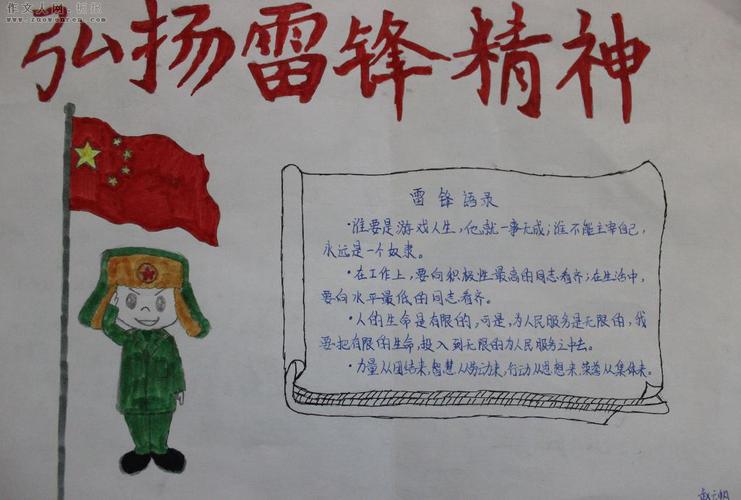 作文人网.
www.zuowenren.com
弘扬雷锋精神
雷锋语录
·谁要是游戏人生,他就一事无成;谁不能主宰自己,
永远是一个奴隶。
·在工作上,要向积极性最高的同志看齐;在生活中,
要向水平最低的同志看齐。
·人的生命是有限的,可是,为人民服务是无限的,我
要把有限的生命,投入到无限的为人民服务之中去。
·力量从团结来,智慧从劳动来,行动从思想来,荣誉从集体来。